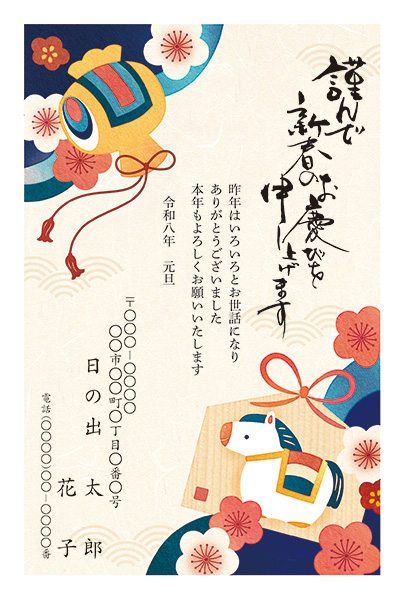 謹んで
新春のお慶びを
申し上げます
昨年はいろいろとお世話になり
ありがとうございました
本年もよろしくお願いいたします
令和八年　元旦
〒〇〇〇－〇〇〇〇
〇〇市〇〇町〇丁目〇番〇号
日の出　太郎
花子
電話(〇〇〇〇)〇〇－〇〇〇〇番